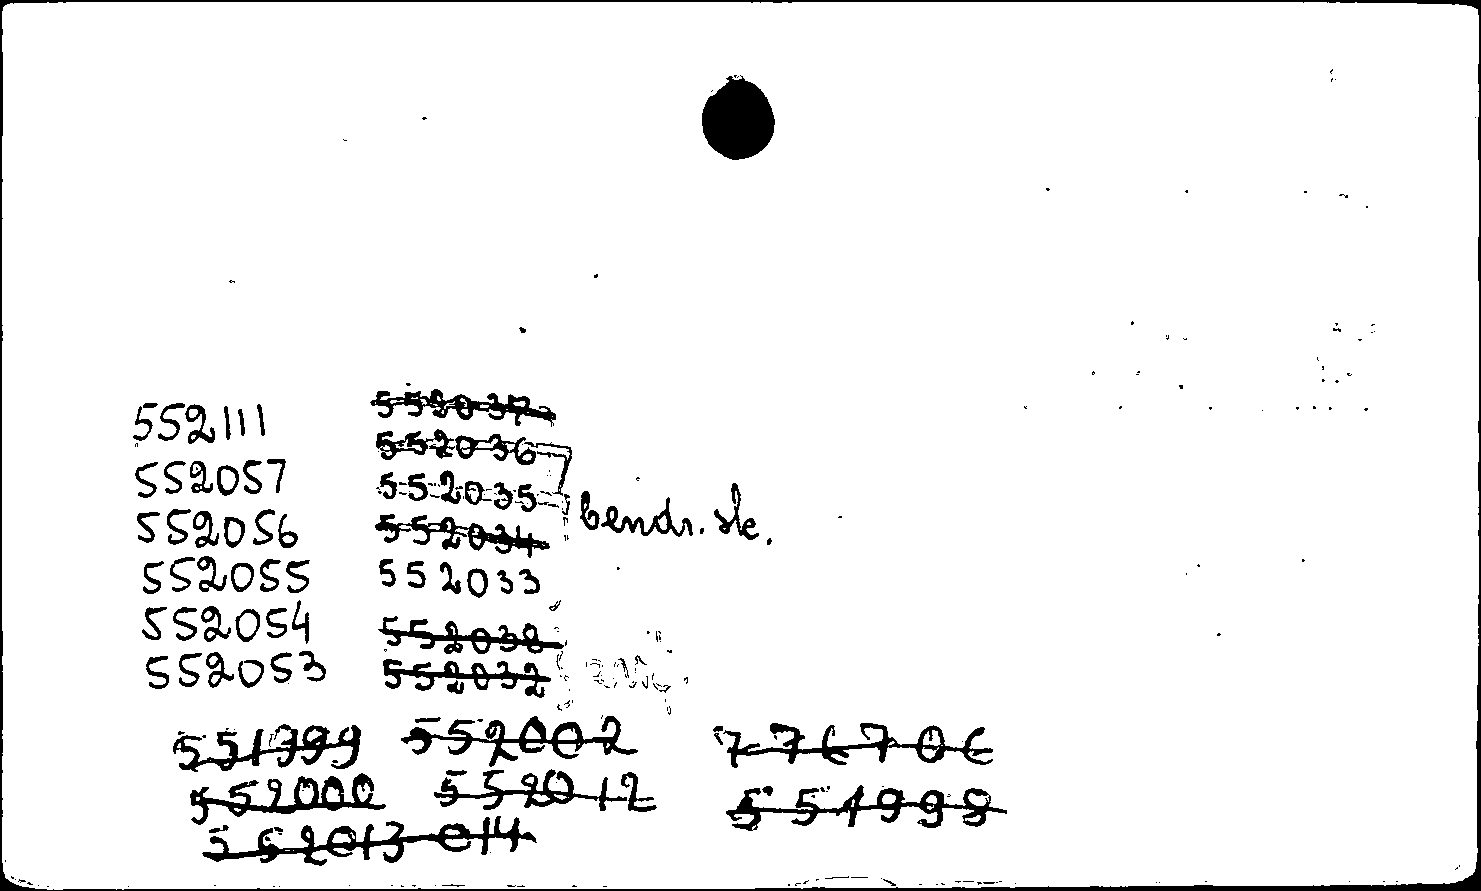 552111
552057
552056
552055
552054
552053
552037
552036
552035
552034
bendr. sk.
552033
552038
552032
551999 552002 776706
552000 552012 551998
552013-014